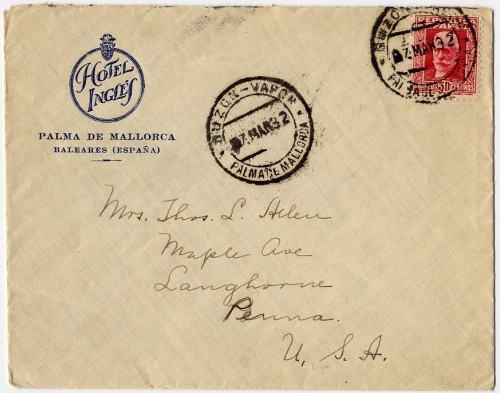 HOTEL
INGLÉS
PALMA DE MALLORCA
BALEARES (ESPAÑA)
BUZON-VAPOR
7.MAR32
PALMA DE MALLORCA
BUZON
7.MAR32
ESPAÑA
CENTIMOS
Mrs. Thos. L. Allen
Maple Ave
Langhorne
Penna.
U. S. A.